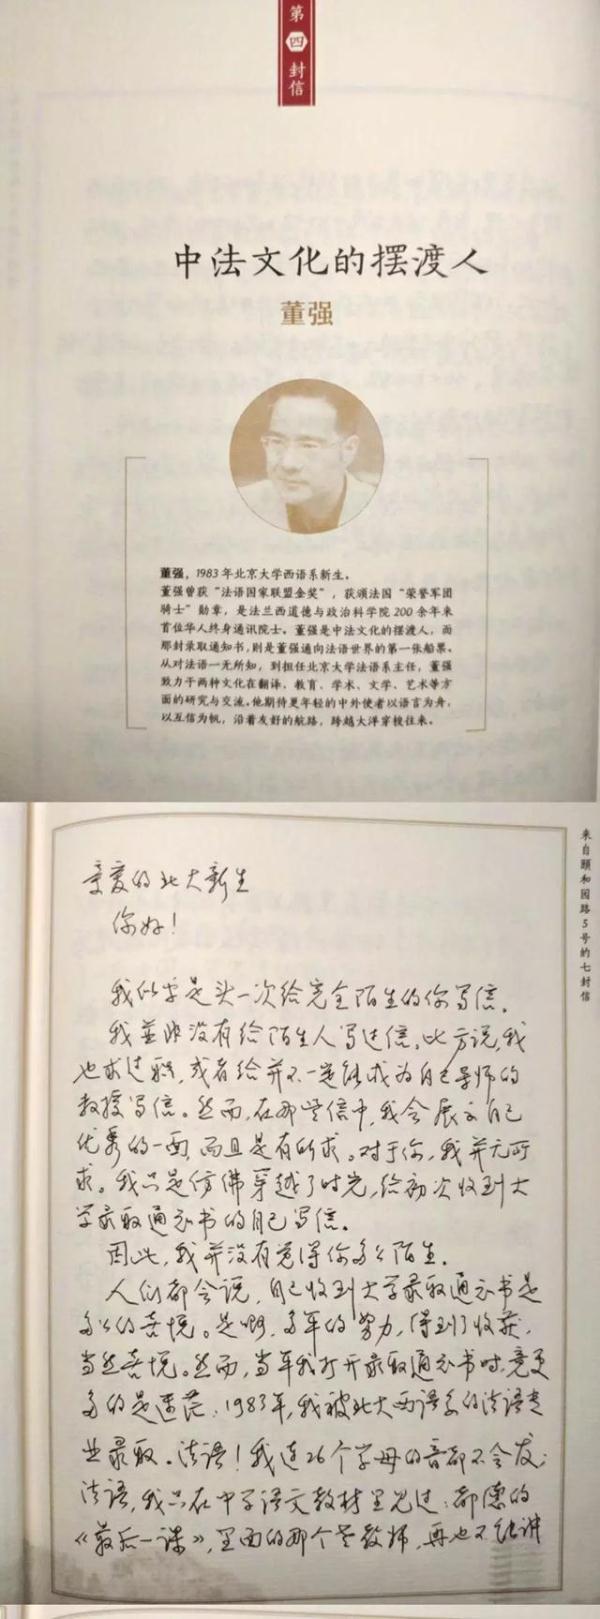 第四封信
中法文化的摆渡人
董强
董强，1983年北京大学西语系新生。
董强曾获“法语国家联盟金奖”，获颁法国“荣誉军团
骑士”勋章，是法兰西道德与政治科学院200余年来
首位华人终身通讯院士。董强是中法文化的摆渡人，而
那封录取通知书，则是董强通向法语世界的第一张船票。
从对法语一无所知，到担任北京大学法语系主任，董强
致力于两种文化在翻译、教育、学术、文学、艺术等方
面的研究与交流。他期待更年轻的中外使者以语言为舟，
以互信为帆，沿着友好的航路，跨越大洋穿梭往来。
来自颐和园路5号的七封信
亲爱的北大新生
你好！
我似乎是头一次给完全陌生的你写信。
我并非没有给陌生人写过信。比方说，我
也求过职，或者给并不一定能成为自己导师的
教授写信。然而，在那些信中，我会展示自己
优秀的一面，而且是有所求。对于你，我并无所
求。我只是仿佛穿越了时光，给初次收到大
学录取通知书的自己写信。
因此，我并没有觉得你多么陌生。
人们都会说，自己收到大学录取通知书是
多么的喜悦。是啊，多年的努力，得到了收获，
当然喜悦。然而，当年我打开录取通知书时，竟更
多的是迷茫：1983年，我被北大西语系的法语专
业录取。法语！我连26个字母的音都不会发；
法语，我只在中学语文教材里见过：都德的
《最后一课》，里面的那个老教师，再也不能讲